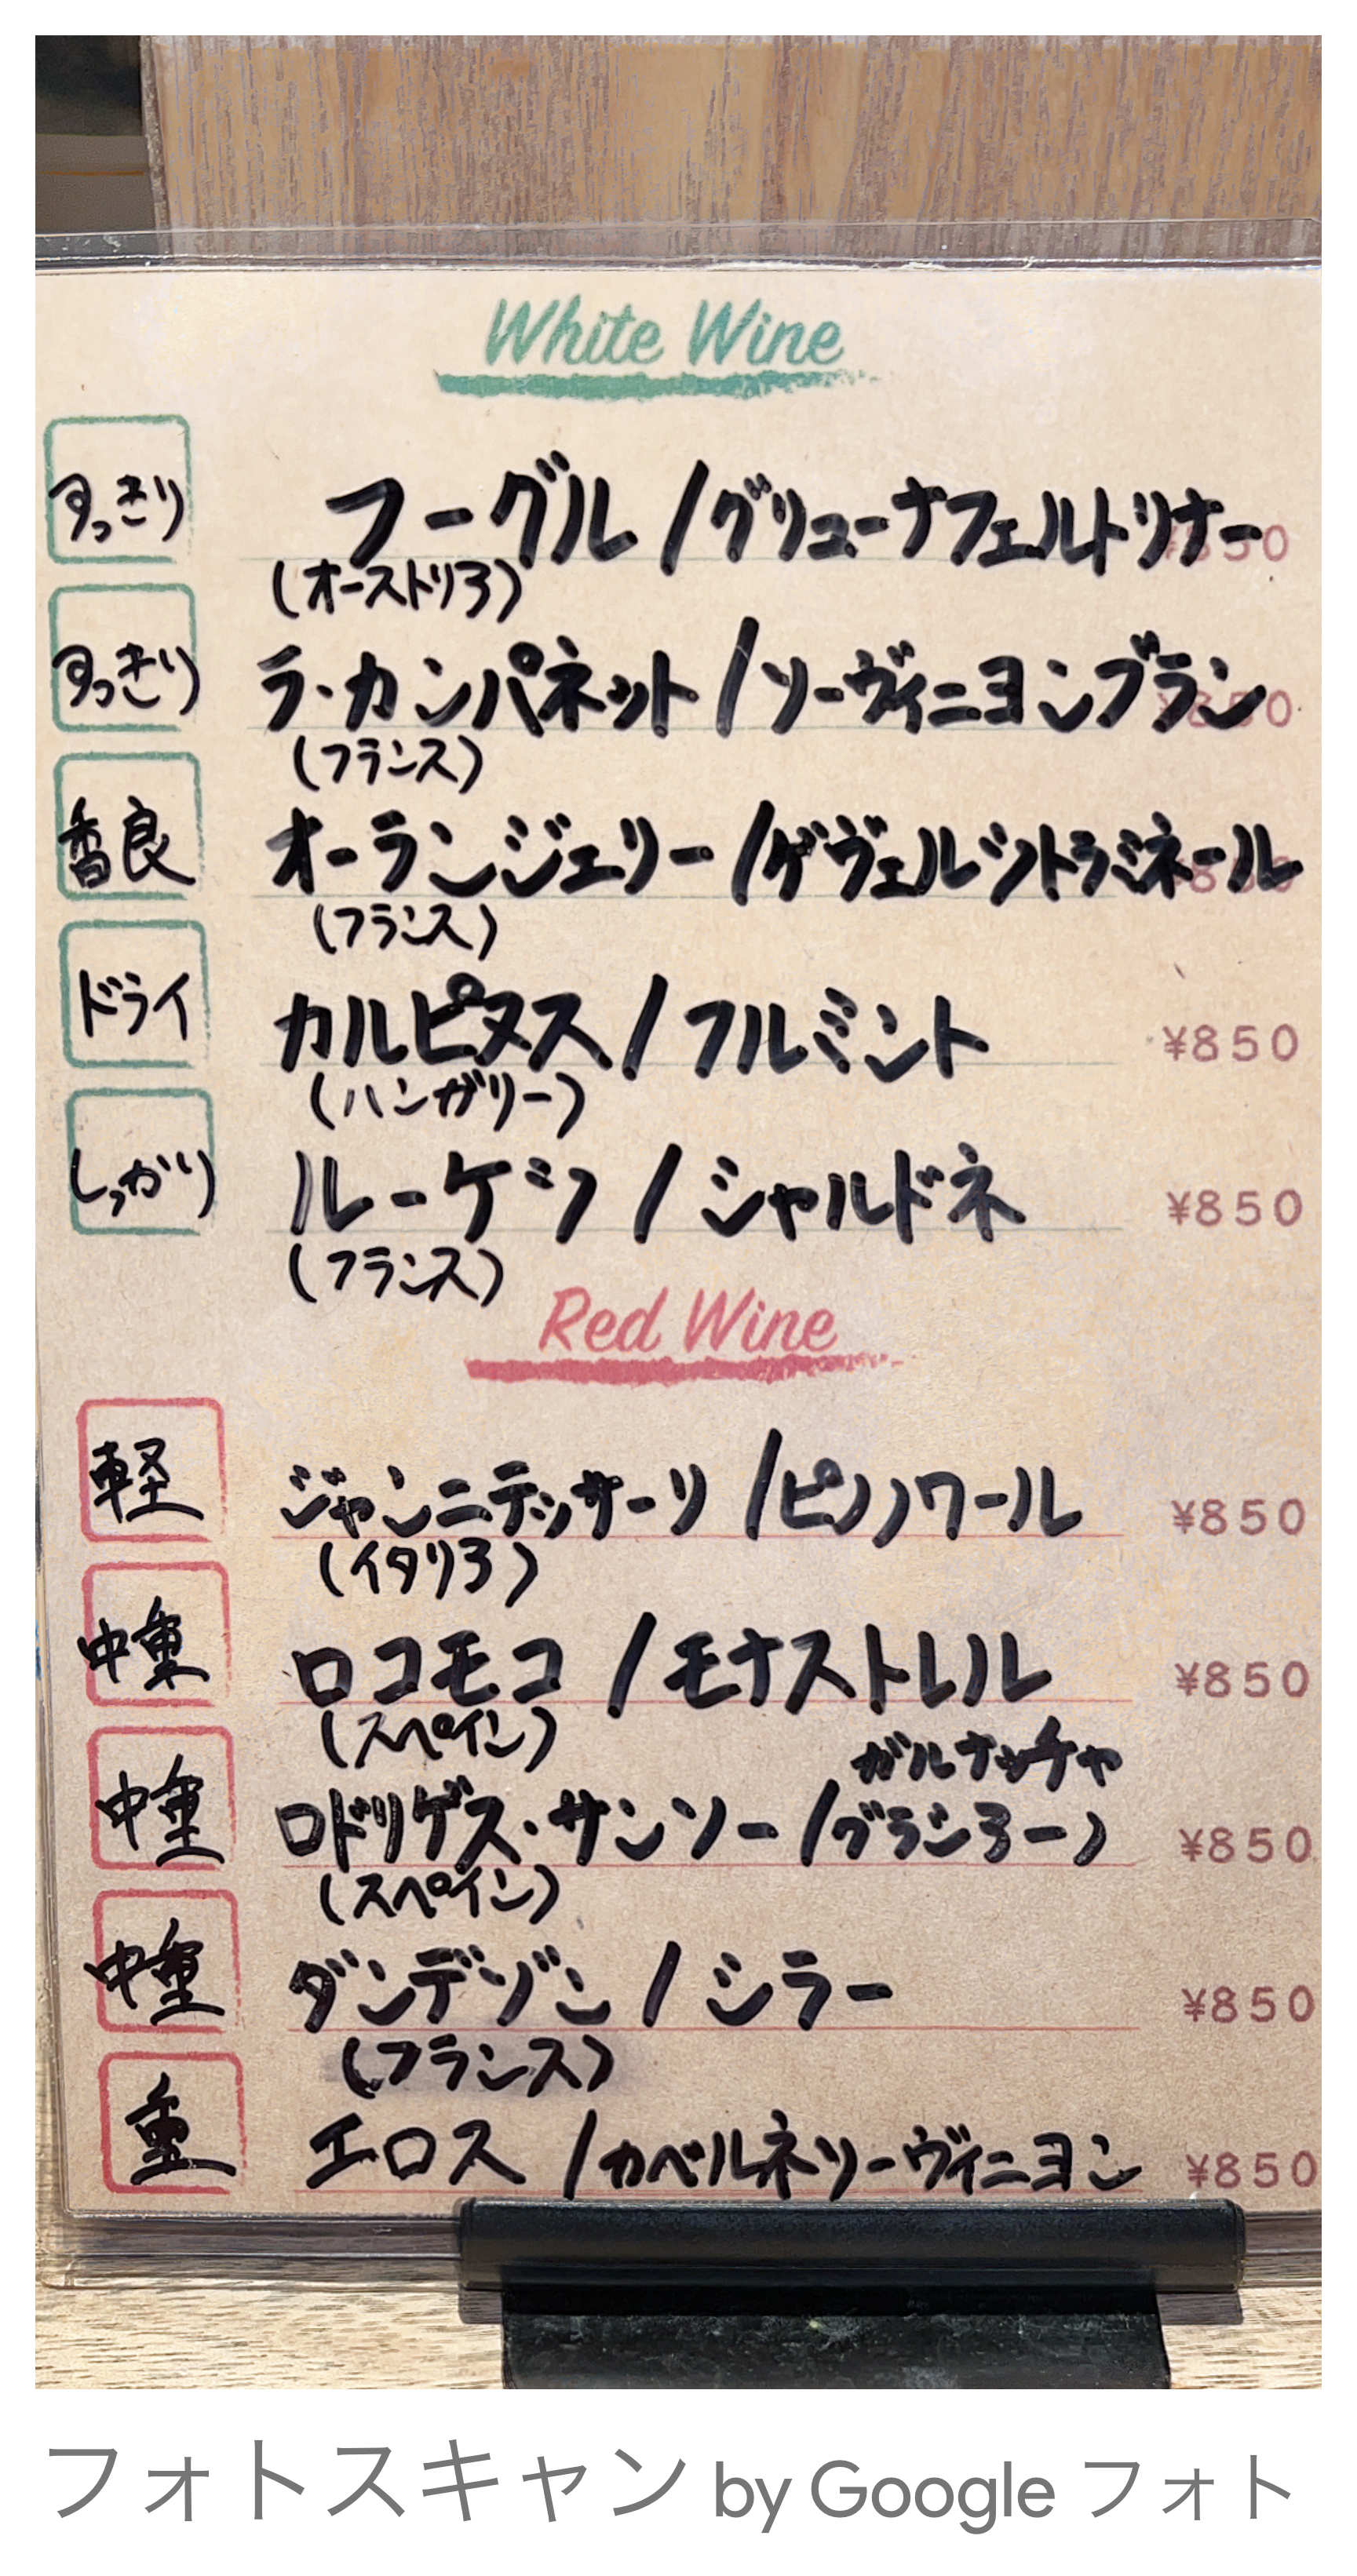 White Wine
すっきり フーグル / グリューナフェルトリナー ¥850
(オーストリア)
すっきり ラ・カンパネット / ソーヴィニヨンブラン ¥850
(フランス)
香良 オーランジェリー / ゲヴェルツトラミネール ¥850
(フランス)
ドライ カルピヌス / フルミント ¥850
(ハンガリー)
しっかり ルーケツ / シャルドネ ¥850
(フランス)
Red Wine
軽 ジャンニテッサーリ / ピノノワール ¥850
(イタリア)
中重 ロコモコ / モナストレル ¥850
(スペイン)
ガルナッチャ
中重 ロドリゲス・サンソー / グラシアーノ ¥850
(スペイン)
中重 ダンデゾン / シラー ¥850
(フランス)
重 エロス / カベルネソーヴィニヨン ¥850
フォトスキャン by Google フォト